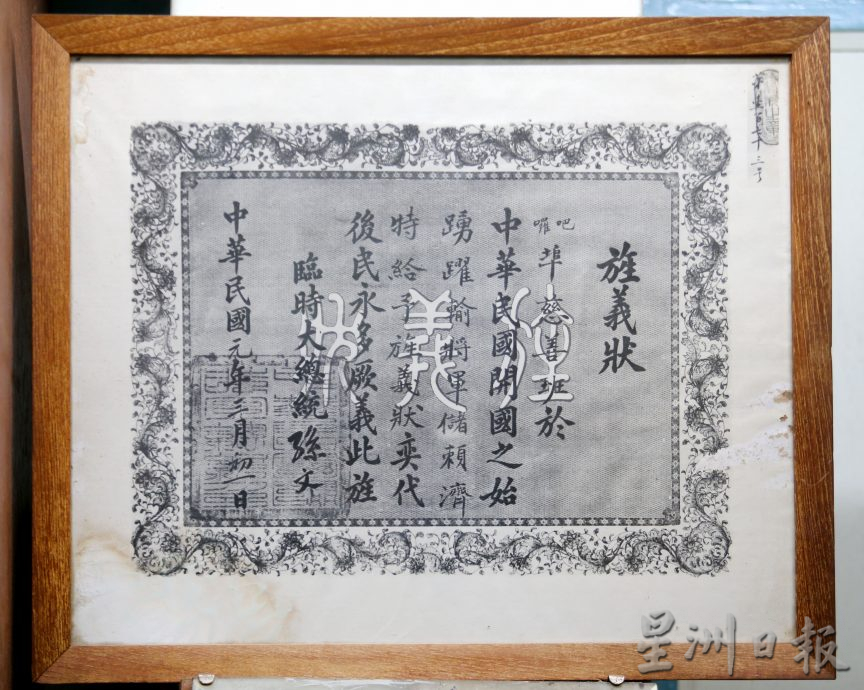 旌義狀
吧囉埠慈善班於
中華民國開國之始
踴躍輸將軍儲賴濟
特給予旌義狀奕代
後民永多厥義此旌
臨時大總統孫文
中華民國元年三月初一日
旌義狀
星洲日報